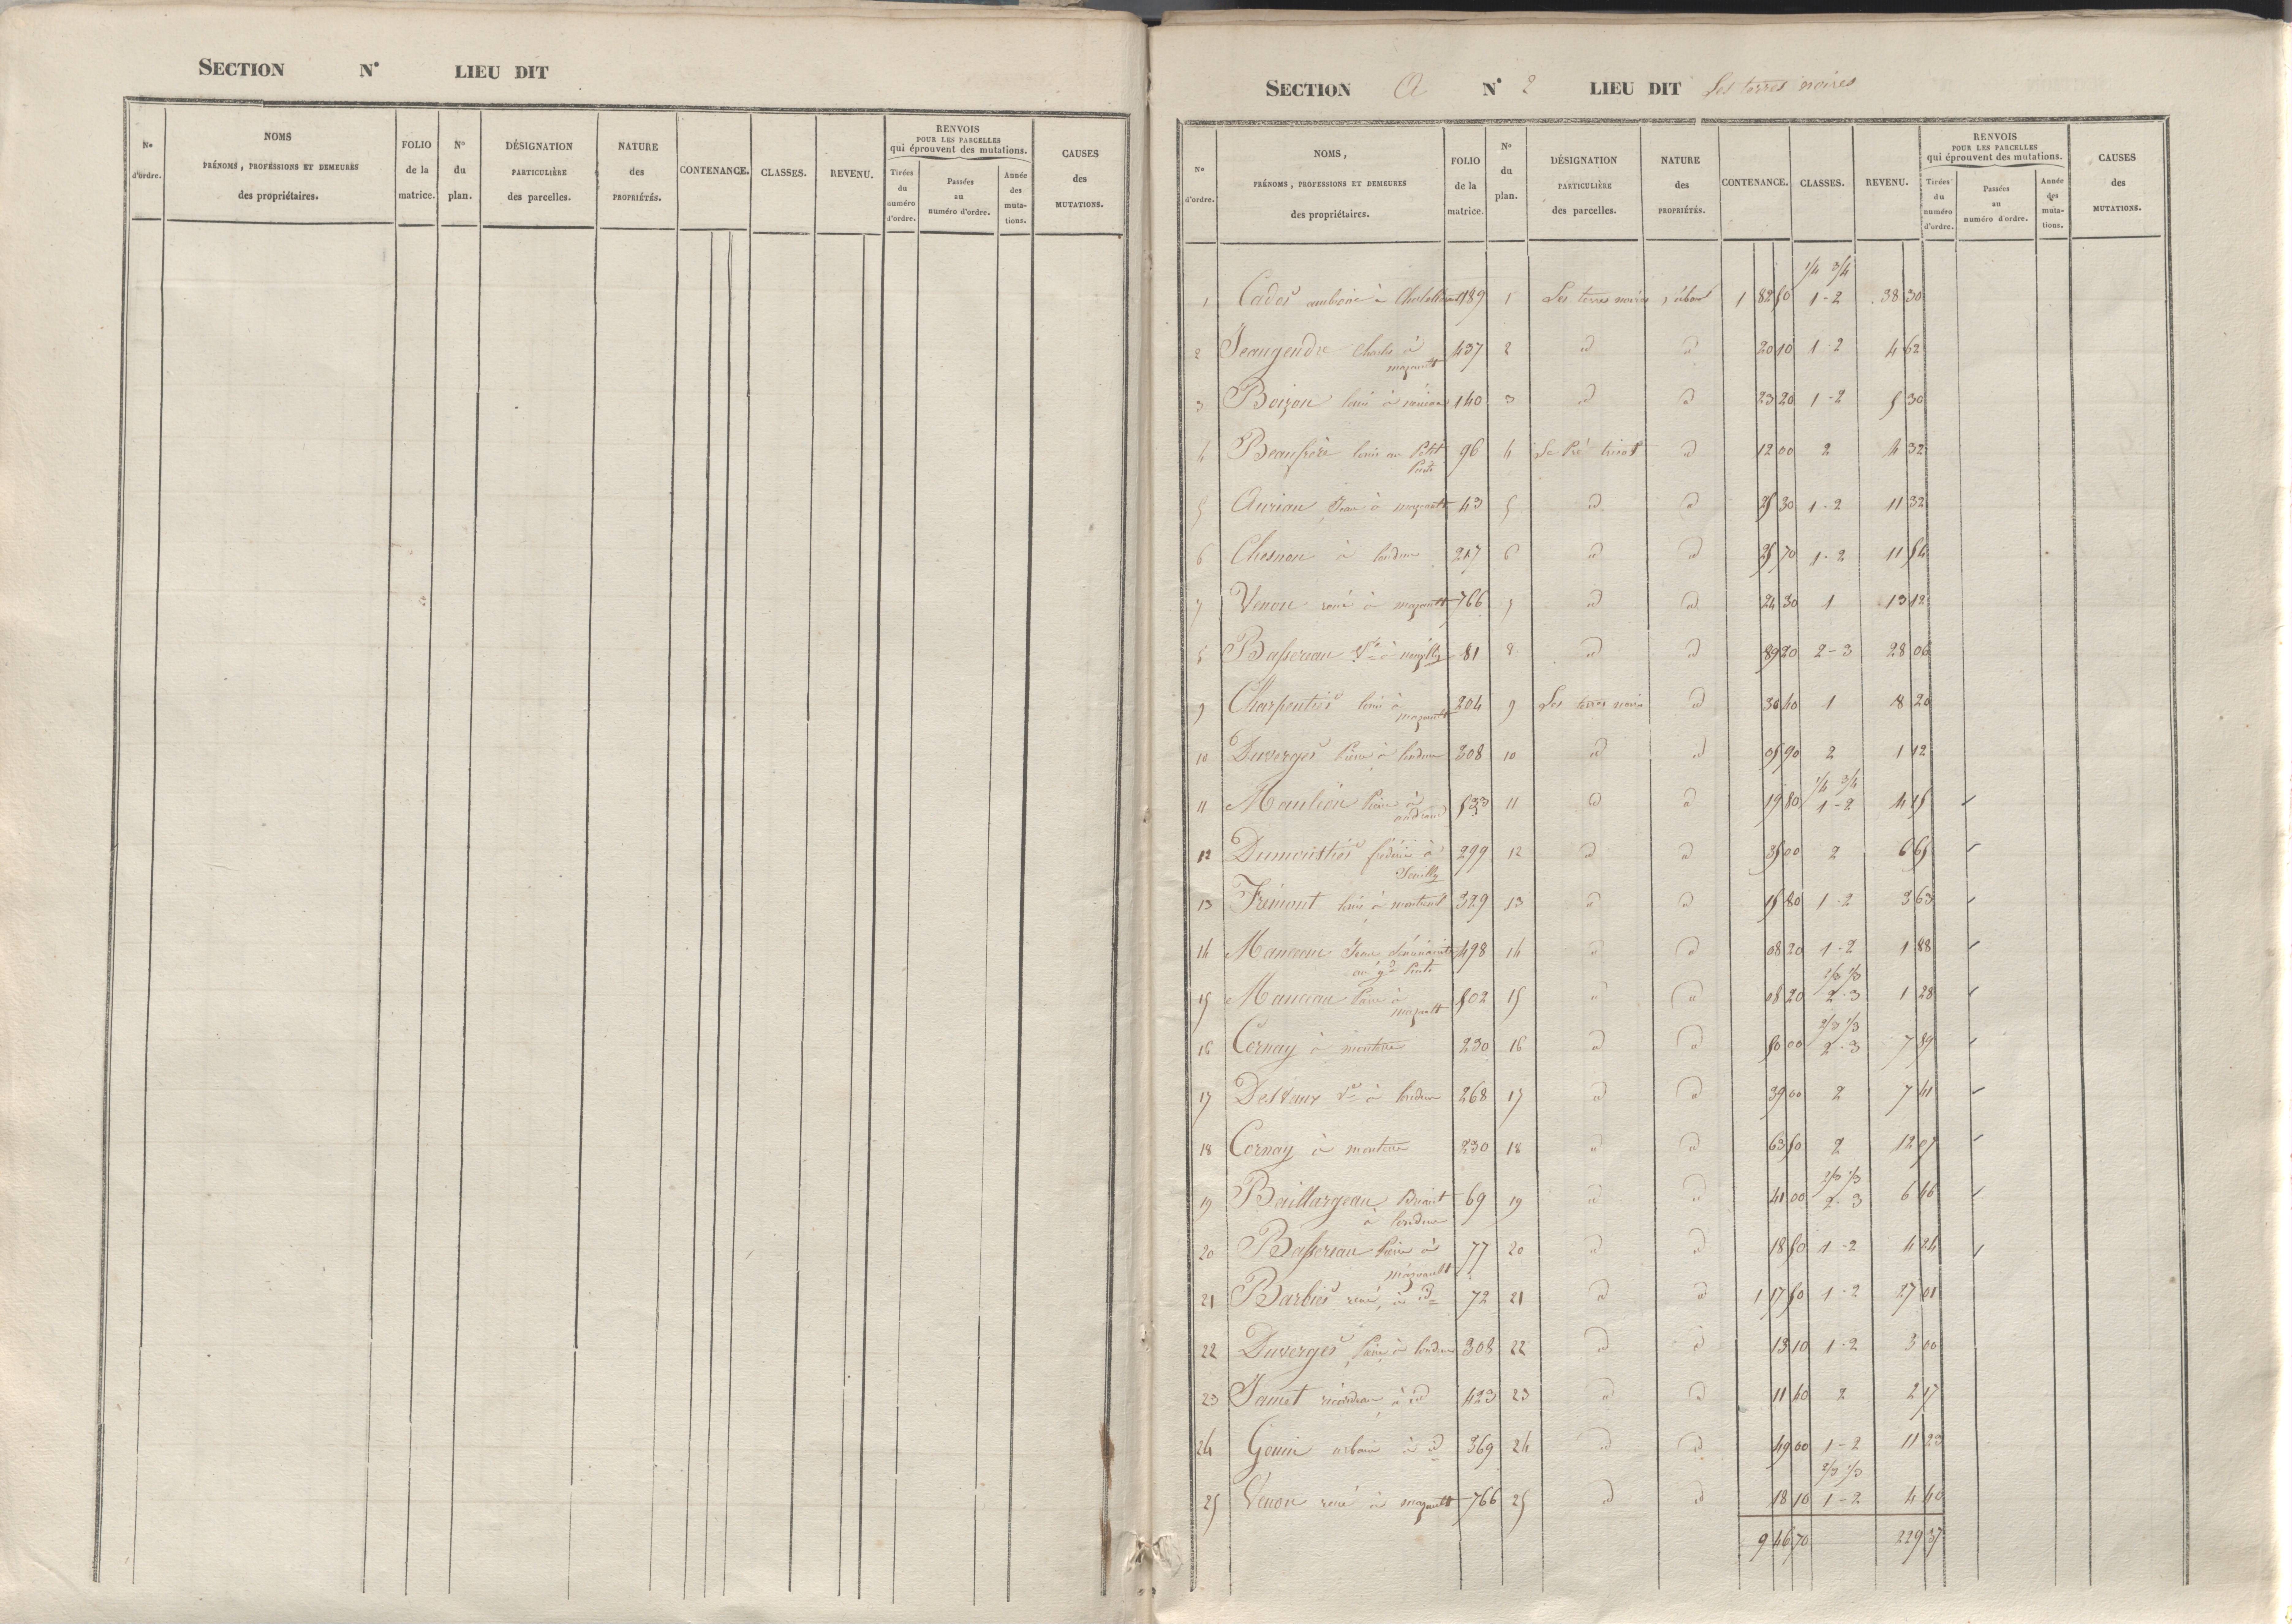 SECTION N° LIEU DIT
N° d'ordre. NOMS PRÉNOMS, PROFESSIONS ET DEMEURES des propriétaires. FOLIO de la matrice. N° du plan. DÉSIGNATION PARTICULIÈRE des parcelles. NATURE des PROPRIÉTÉS. CONTENANCE. CLASSES. REVENU. RENVOIS POUR LES PARCELLES qui éprouvent des mutations. Tirées du numéro d'ordre. Passées au numéro d'ordre. Année des mutations. CAUSES des MUTATIONS.
SECTION A N° 2 LIEU DIT Les terres noires
N° d'ordre. NOMS, PRÉNOMS, PROFESSIONS ET DEMEURES des propriétaires. FOLIO de la matrice. N° du plan. DÉSIGNATION PARTICULIÈRE des parcelles. NATURE des PROPRIÉTÉS. CONTENANCE. CLASSES. REVENU. RENVOIS POUR LES PARCELLES qui éprouvent des mutations. Tirées du numéro d'ordre. Passées au numéro d'ordre. Année des mutations. CAUSES des MUTATIONS.
1/4 3/4
1 à 189 1 Les terres noires 1 82 50 1-2 38 30
2 Jeaugendre Charles à 437 2 id id 20 10 1-2 4 62
3 Boizon louis à 140 3 id id 23 20 1-2 5 30
4 Beaufrère louis au Petit 96 4 Le Pré id 12 00 2 4 32
5 Auriau Jean à 43 5 id id 25 30 1-2 11 32
6 Chesnon à loudun 217 6 id id 25 70 1-2 11 54
7 Venon rené à 766 7 id id 24 30 1 13 12
8 Basseriau Ve à 81 8 id id 89 20 2-3 28 06
9 Charpentier louis à 204 9 Les terres noires id 30 40 1 8 20
10 Duverger Pierre à loudun 308 10 id id 05 90 2 1 12
1/4 3/4
11 Mauléon Pierre à 533 11 id id 19 80 1-2 4 15
12 Dumoustier à 299 12 id id 35 00 2 6 65
13 Frémont louis à 329 13 id id 15 80 1-2 3 63
14 Manceau Jean 498 14 id id 08 20 1-2 1 88
au gd
2/3 1/3
15 Manceau Pierre à 502 15 id id 08 20 2-3 1 28
2/3 1/3
16 Cornay à 230 16 id id 50 00 2-3 7 89
17 Desvaux Ve à loudun 268 17 id id 39 00 2 7 41
18 Cornay à 230 18 id id 63 50 2 12 07
2/3 1/3
19 Baillargeau Briant 69 19 id id 41 00 2-3 6 46
à loudun
20 Basseriau Pierre à 77 20 id id 18 50 1-2 4 24
21 Barbier rené, à id 72 21 id id 1 17 50 1-2 27 01
22 Duverger Pierre à loudun 308 22 id id 13 10 1-2 3 00
23 Jamet à id 423 23 id id 11 40 2 2 17
24 urbain à id 369 24 id id 49 00 1-2 11 23
2/3 1/3
25 Venon rené à 766 25 id id 18 10 1-2 4 40
9 46 70 229 37